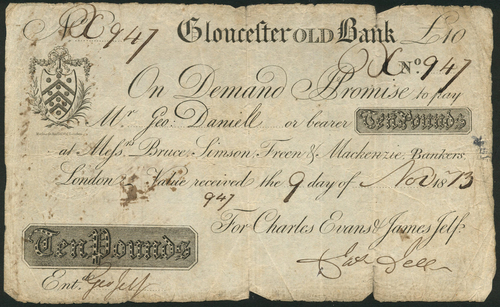 No X 947 Gloucester OLD Bank £10
X No. 947
On Demand I Promise to pay
Mr. Geo: Daniell or bearer Ten Pounds
at Messrs. Bruce, Simson, Freen & Mackenzie, Bankers
London Value received the 9 day of Nov 1813
947
For Charles Evans & James Jelf
Ten Pounds
Jas Jelf
Entd. Geo Jelf